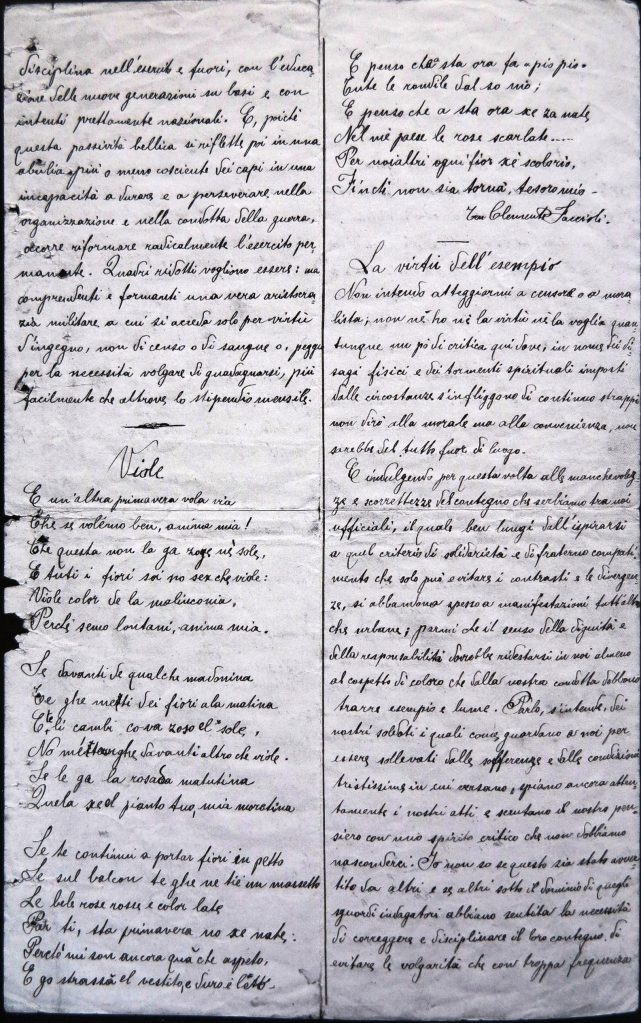 disciplina nell'esercito e fuori, con l'educa-
zione delle nuove generazioni su basi e con
intenti prettamente nazionali. E, poiché
questa passività bellica si riflette poi in una
abulia più o meno cosciente dei capi in una
incapacità a durare e a perseverare nella
organizzazione e nella condotta della guerra,
occorre riformare radicalmente l'esercito per-
manente. Quadri ridotti vogliono essere: ma
comprendenti e formanti una vera aristocra-
zia militare a cui si acceda solo per virtù
d'ingegno, non di censo o di sangue o, peggio
per la necessità volgare di guadagnarsi, più
facilmente che altrove lo stipendio mensile.
Viole
E un'altra primavera vola via
Che se volémo ben, anima mia!
Che questa non la ga né sole,
E tuti i fiori soi no xe che viole:
Viole color de la malinconia,
Perché semo lontani, anima mia.
Se davanti de qualche madonina
Te ghe metti dei fiori a la matina
E te li cambi co va zoso el sole,
No metterghe davanti altro che viole.
Se le ga la rosada matutina
Quela xe el pianto tuo, mia moretina
Se te continui a portar fiori in petto
Se sul balcon te ghe ne tié un massetto
Le bele rose rosse e color late
Par ti, sta primavera no xe nate:
Perché mi son ancora quà che aspeto,
E go strassà el vestito, e duro è l'èto.
E penso che a sta ora fa "pio pio"
Tute le rondile dal so nio;
E penso che a sta ora xe za nate
Nel mé paese le rose scarlate....
Per noialtri ogni fior xé scolorio,
Finché non sia tornà, tesoro mio.
Clemente
La virtù dell'esempio
Non intendo atteggiarmi a censore o a mora-
lista; non ne ho nè la virtù nè la voglia quan-
tunque un pò di critica qui dove, in nome dei di-
sagi fisici e dei tormenti spirituali imposti
dalle circostanze s'infliggono di continuo strappi
non dirò alla morale ma alla convenienza, non
sarebbe del tutto fuor di luogo.
E indulgendo per questa volta alle manchevolez-
ze e scorrettezze del contegno che serbiamo tra noi
ufficiali, il quale ben lungi dall'ispirarsi
a quel criterio di solidarietà e di fraterno compati-
mento che solo può evitare i contrasti e le divergen-
ze, si abbandona spesso a manifestazioni tutt'altro
che urbane; parmi che il senso della dignità e
della responsabilità dovrebbe ridestarsi in noi almeno
al cospetto di coloro che dalla nostra condotta debbono
trarre esempio e lume. Parlo, s'intende, dei
nostri soldati i quali come guardano a noi per
essere sollevati dalle sofferenze e dalle condizioni
tristissime in cui versano, spiano ancora atten-
tamente i nostri atti e scrutano il nostro pen-
siero con uno spirito critico che non dobbiamo
nasconderci. Io non so se questo sia stato avver-
tito da altri e se altri sotto il dominio di quegli
sguardi indagatori abbiano sentita la necessità
di correggere e disciplinare il loro contegno, di
evitare le volgarità che con troppa frequenza